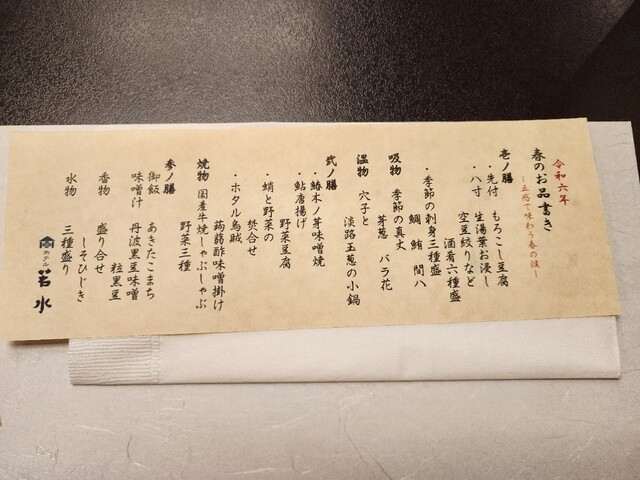 令和六年
春のお品書き
―五感で味わう春の護―
壱ノ膳
・先付 もろこし豆腐
生湯葉お浸し
・八寸 空豆絞りなど
酒肴六種盛
・季節の刺身三種盛
鯛 鮪 間八
吸物 季節の真丈
芽葱 バラ花
温物 穴子と
淡路玉葱の小鍋
弐ノ膳
・鰆木ノ芽味噌焼
・鮎唐揚げ
野菜豆腐
・蛸と野菜の
焚合せ
・ホタル烏賊
蒟蒻酢味噌掛け
焼物 国産牛焼しゃぶしゃぶ
野菜三種
参ノ膳
御飯 あきたこまち
味噌汁 丹波黒豆味噌
粒黒豆
香物 盛り合せ
しそひじき
水物 三種盛り
ホテル 若水